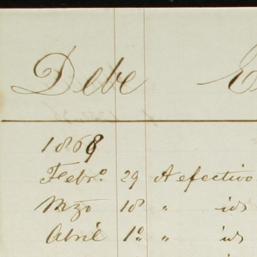 Debe E
1869
Febr.º 29 A efectivo
Mzo 18 " id
Abril 1º " id